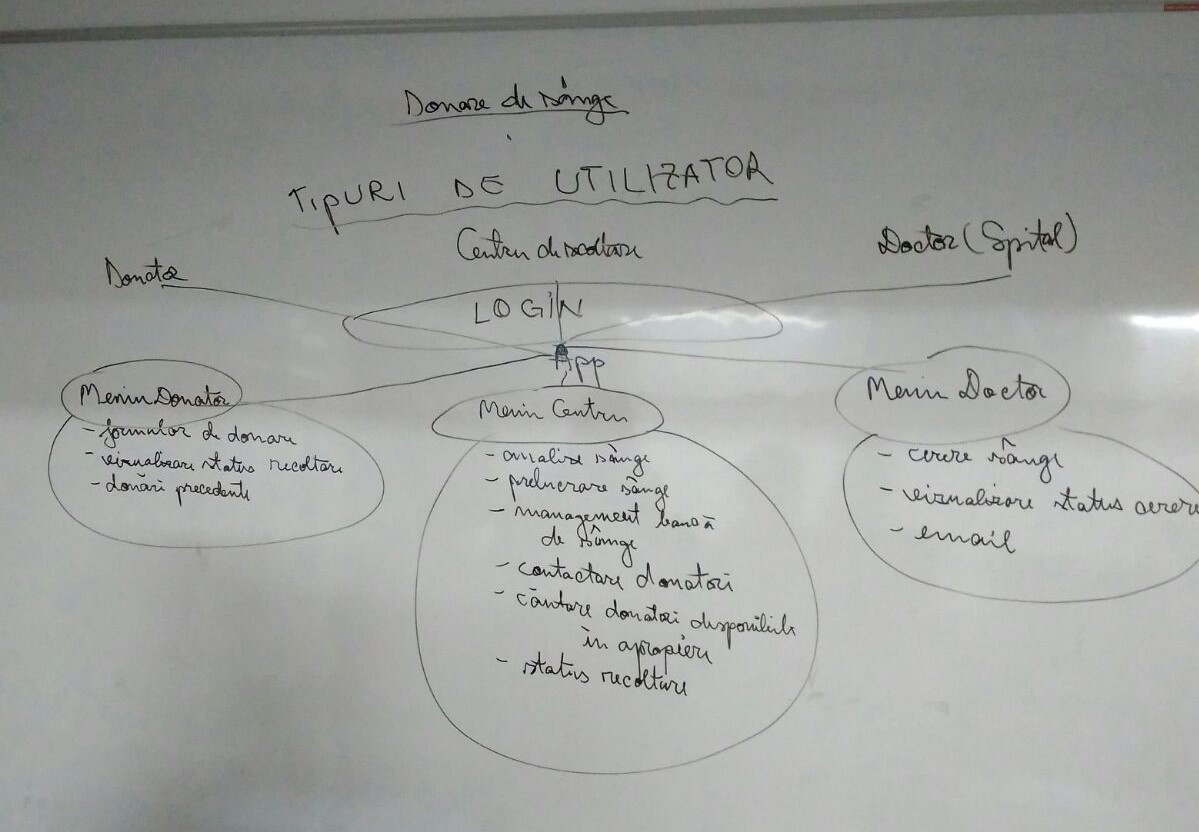 Donare de sânge
TIPURI DE UTILIZATOR
Donator
Centru de recoltare
Doctor (Spital)
LOGIN
App
Meniu Donator
- formular de donare
- vizualizare status recoltare
- donări precedente
Meniu Centru
- analize sânge
- prelucrare sânge
- management bancă
de sânge
- contactare donatori
- căutare donatori disponibili
în apropiere
- status recoltare
Meniu Doctor
- cerere sânge
- vizualizare status cerere
- email